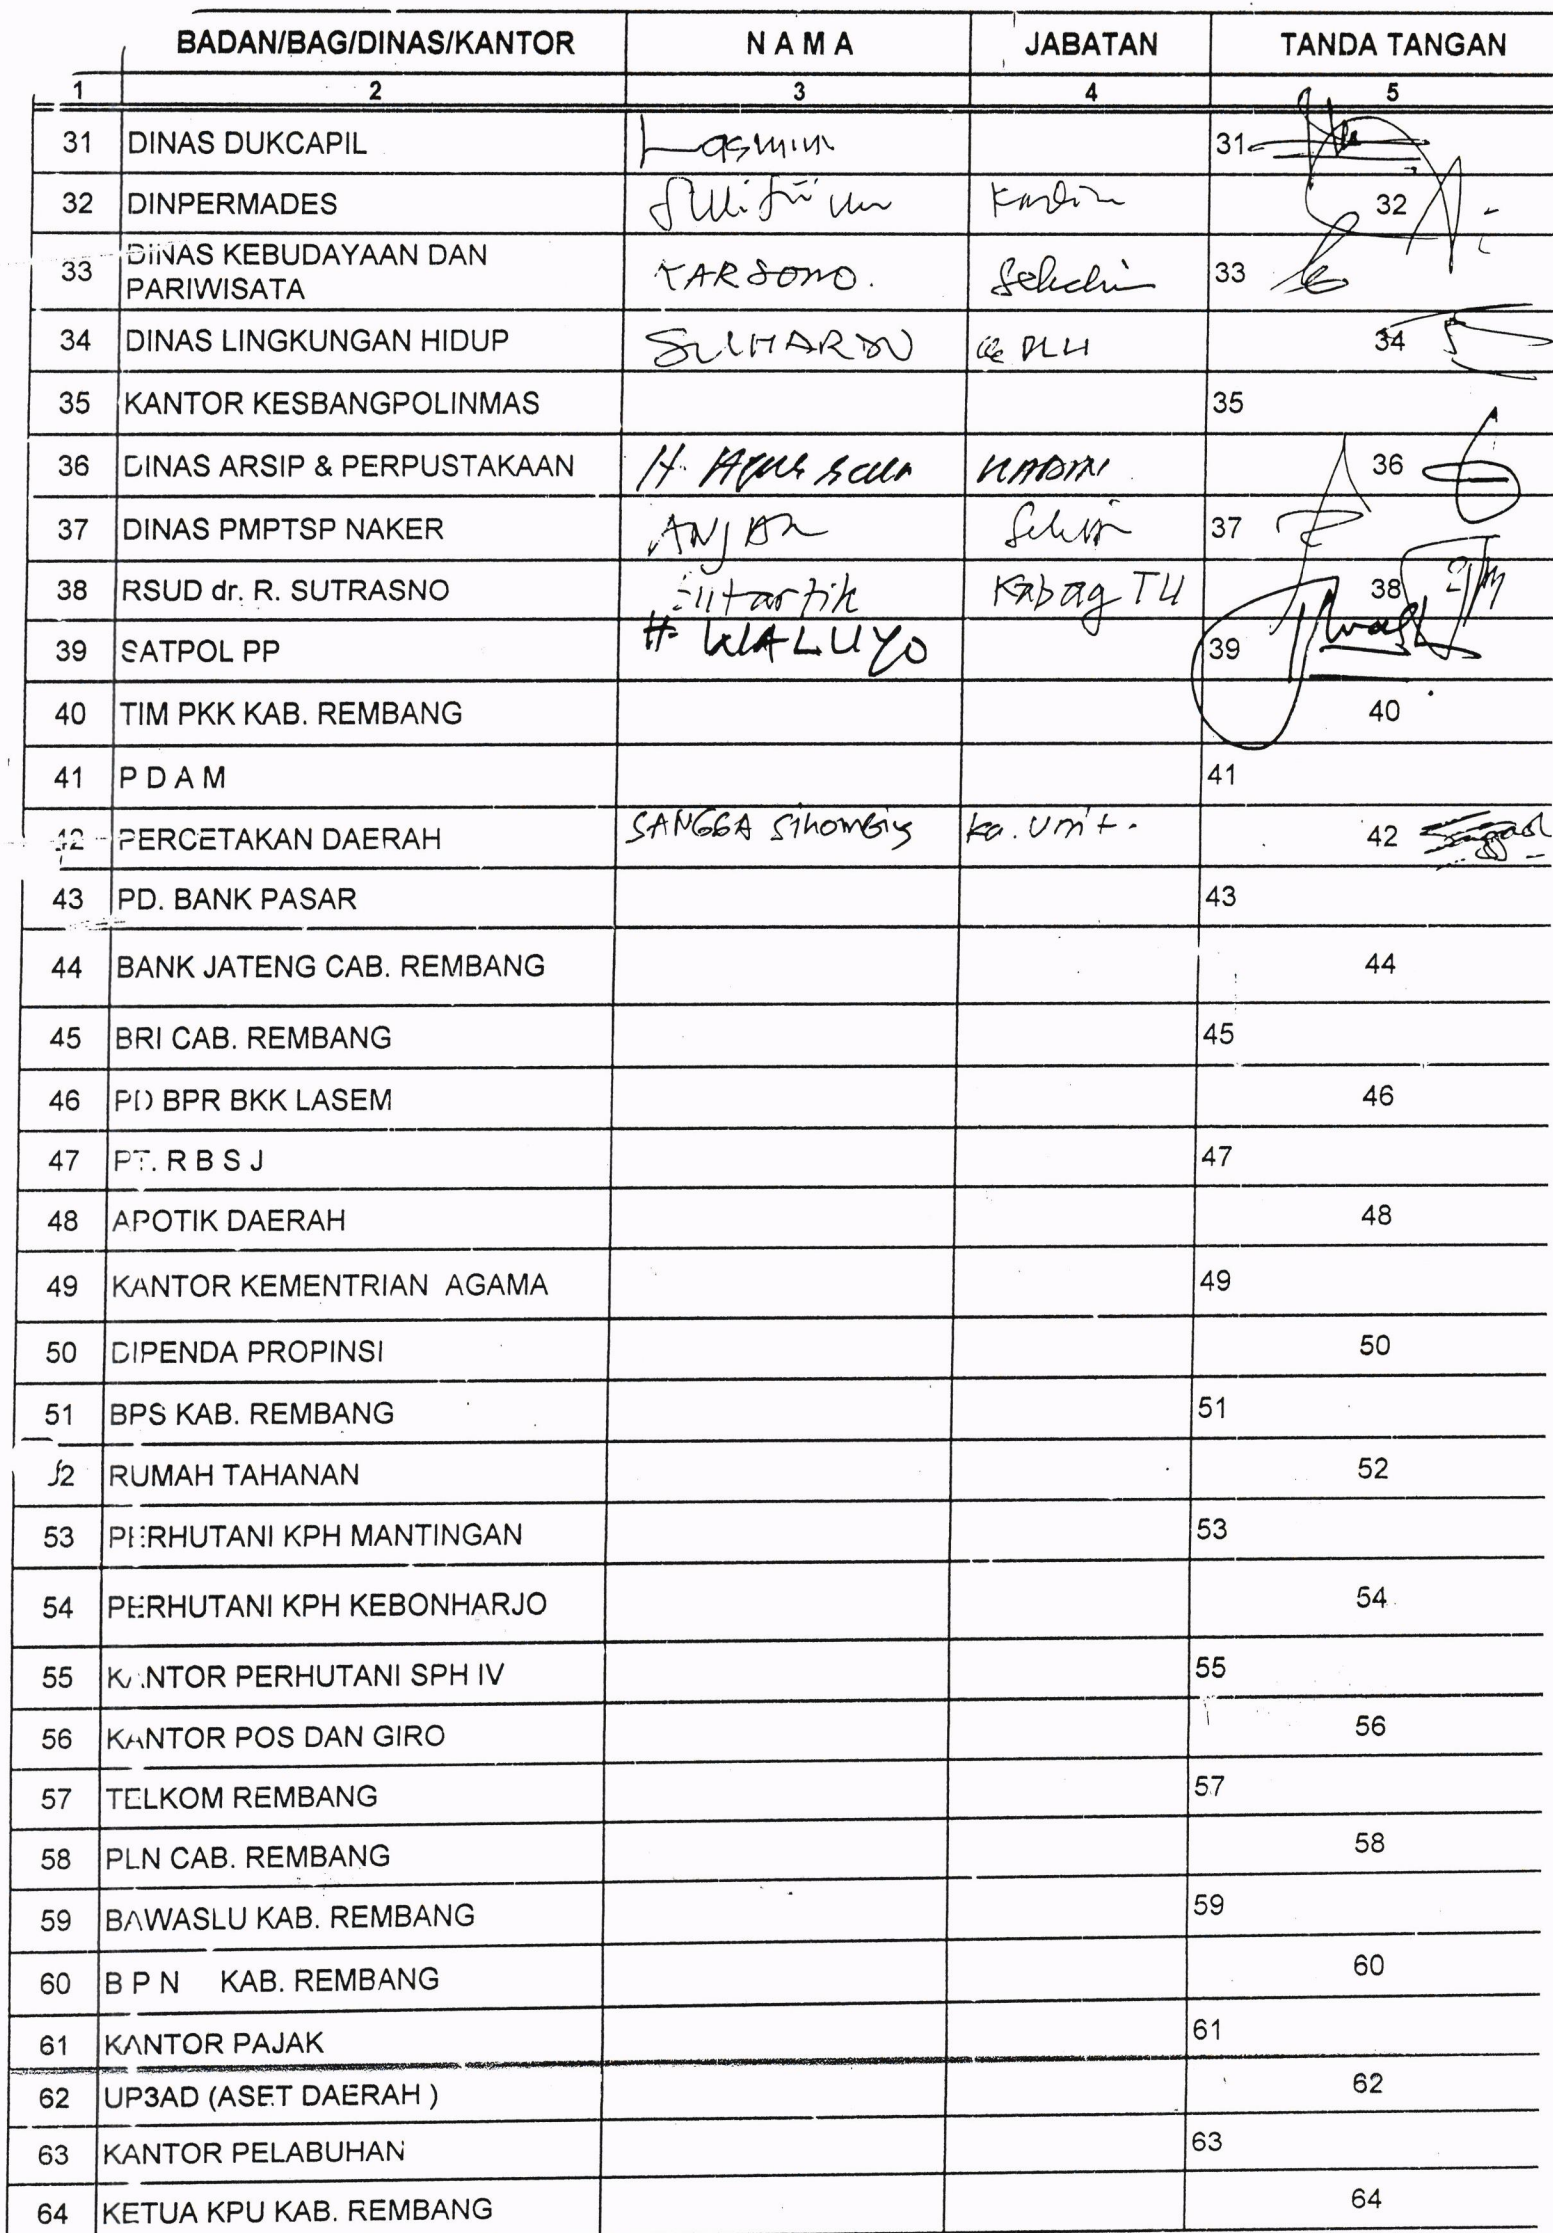 BADAN/BAG/DINAS/KANTOR N A M A JABATAN TANDA TANGAN
1 2 3 4 5
31 DINAS DUKCAPIL Lasmin 31
32 DINPERMADES 32
33 DINAS KEBUDAYAAN DAN PARIWISATA KARSONO. 33
34 DINAS LINGKUNGAN HIDUP SUHARDI 34
35 KANTOR KESBANGPOLINMAS 35
36 DINAS ARSIP & PERPUSTAKAAN H. Agus 36
37 DINAS PMPTSP NAKER 37
38 RSUD dr. R. SUTRASNO Kabag TU 38
39 SATPOL PP H. WALUYO 39
40 TIM PKK KAB. REMBANG 40
41 P D A M 41
42 PERCETAKAN DAERAH SANGGA Sihombing ka. Unit. 42
43 PD. BANK PASAR 43
44 BANK JATENG CAB. REMBANG 44
45 BRI CAB. REMBANG 45
46 PD BPR BKK LASEM 46
47 PT. R B S J 47
48 APOTIK DAERAH 48
49 KANTOR KEMENTRIAN AGAMA 49
50 DIPENDA PROPINSI 50
51 BPS KAB. REMBANG 51
52 RUMAH TAHANAN 52
53 PERHUTANI KPH MANTINGAN 53
54 PERHUTANI KPH KEBONHARJO 54
55 KANTOR PERHUTANI SPH IV 55
56 KANTOR POS DAN GIRO 56
57 TELKOM REMBANG 57
58 PLN CAB. REMBANG 58
59 BAWASLU KAB. REMBANG 59
60 B P N KAB. REMBANG 60
61 KANTOR PAJAK 61
62 UP3AD (ASET DAERAH ) 62
63 KANTOR PELABUHAN 63
64 KETUA KPU KAB. REMBANG 64